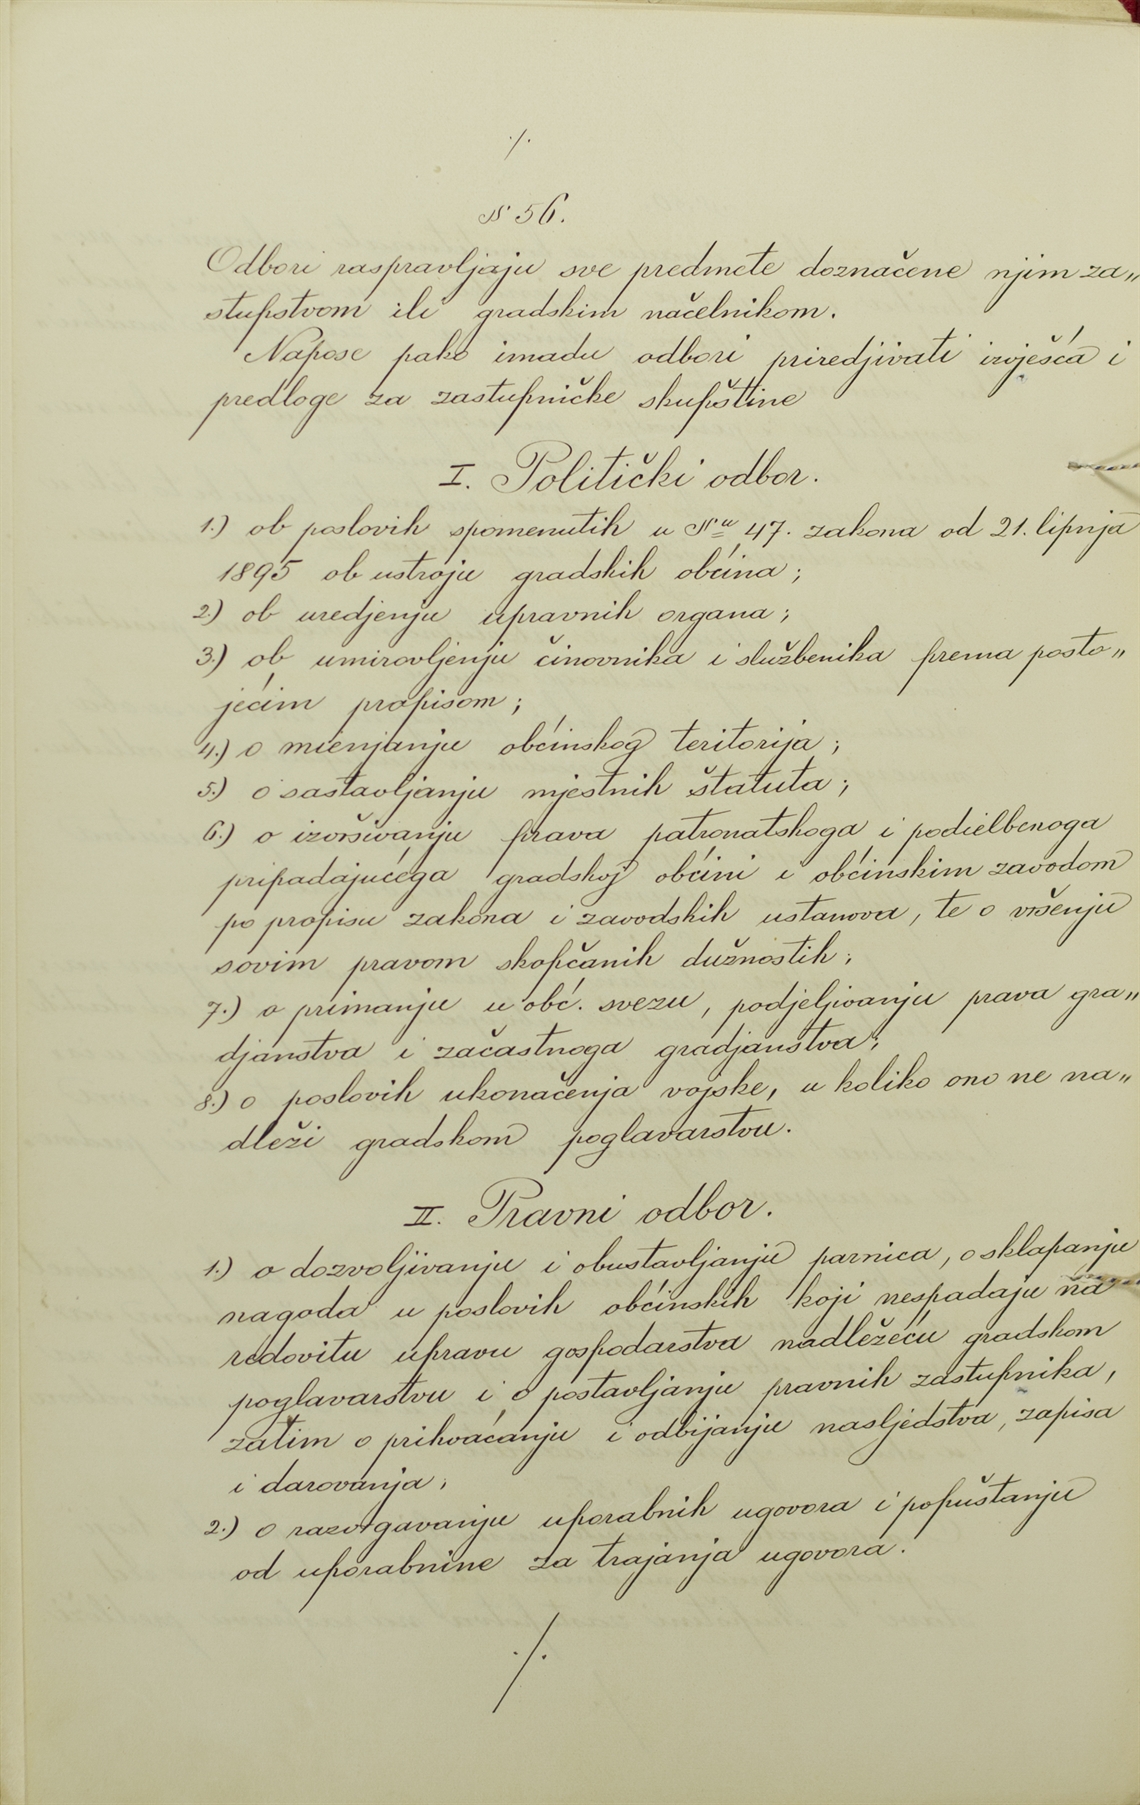 ./.
§ 56.
Odbori raspravljaju sve predmete doznačene njim za„
stupstvom ili gradskim načelnikom.
Napose pako imadu odbori priredjivati izvješća i
predloge za zastupničke skupštine
I. Politički odbor.
1.) ob poslovih spomenutih u §u 47. zakona od 21. lipnja
1895 ob ustroju gradskih obćina;
2.) ob uredjenju upravnih organa;
3.) ob umirovljenju činovnika i službenika prema posto„
jećim propisom;
4.) o mienjanju obćinskog teritorija;
5.) o sastavljanju mjestnih štatuta;
6.) o izvršivanju prava patronatskoga i podielbenoga
pripadajućega gradskoj obćini i obćinskim zavodom
po propisu zakona i zavodskih ustanova, te o vršenju
sovim pravom skopčanih dužnostih;
7.) o primanju u obć. svezu, podjeljivanju prava gra„
djanstva i začastnoga gradjanstva;
8.) o poslovih ukonačenja vojske, u koliko ono ne na„
dleži gradskom poglavarstvu.
II. Pravni odbor.
1.) o dozvoljivanju i obustavljanju parnica, o sklapanju
nagoda u poslovih obćinskih koji nespadaju na
redovitu upravu gospodarstva nadležeću gradskom
poglavarstvu i o postavljanju pravnih zastupnika,
zatim o prihvaćanju i odbijanju nasljedstva, zapisa
i darovanja;
2.) o razvrgavanju uporabnih ugovora i popuštanju
od uporabnine za trajanja ugovora.
./.